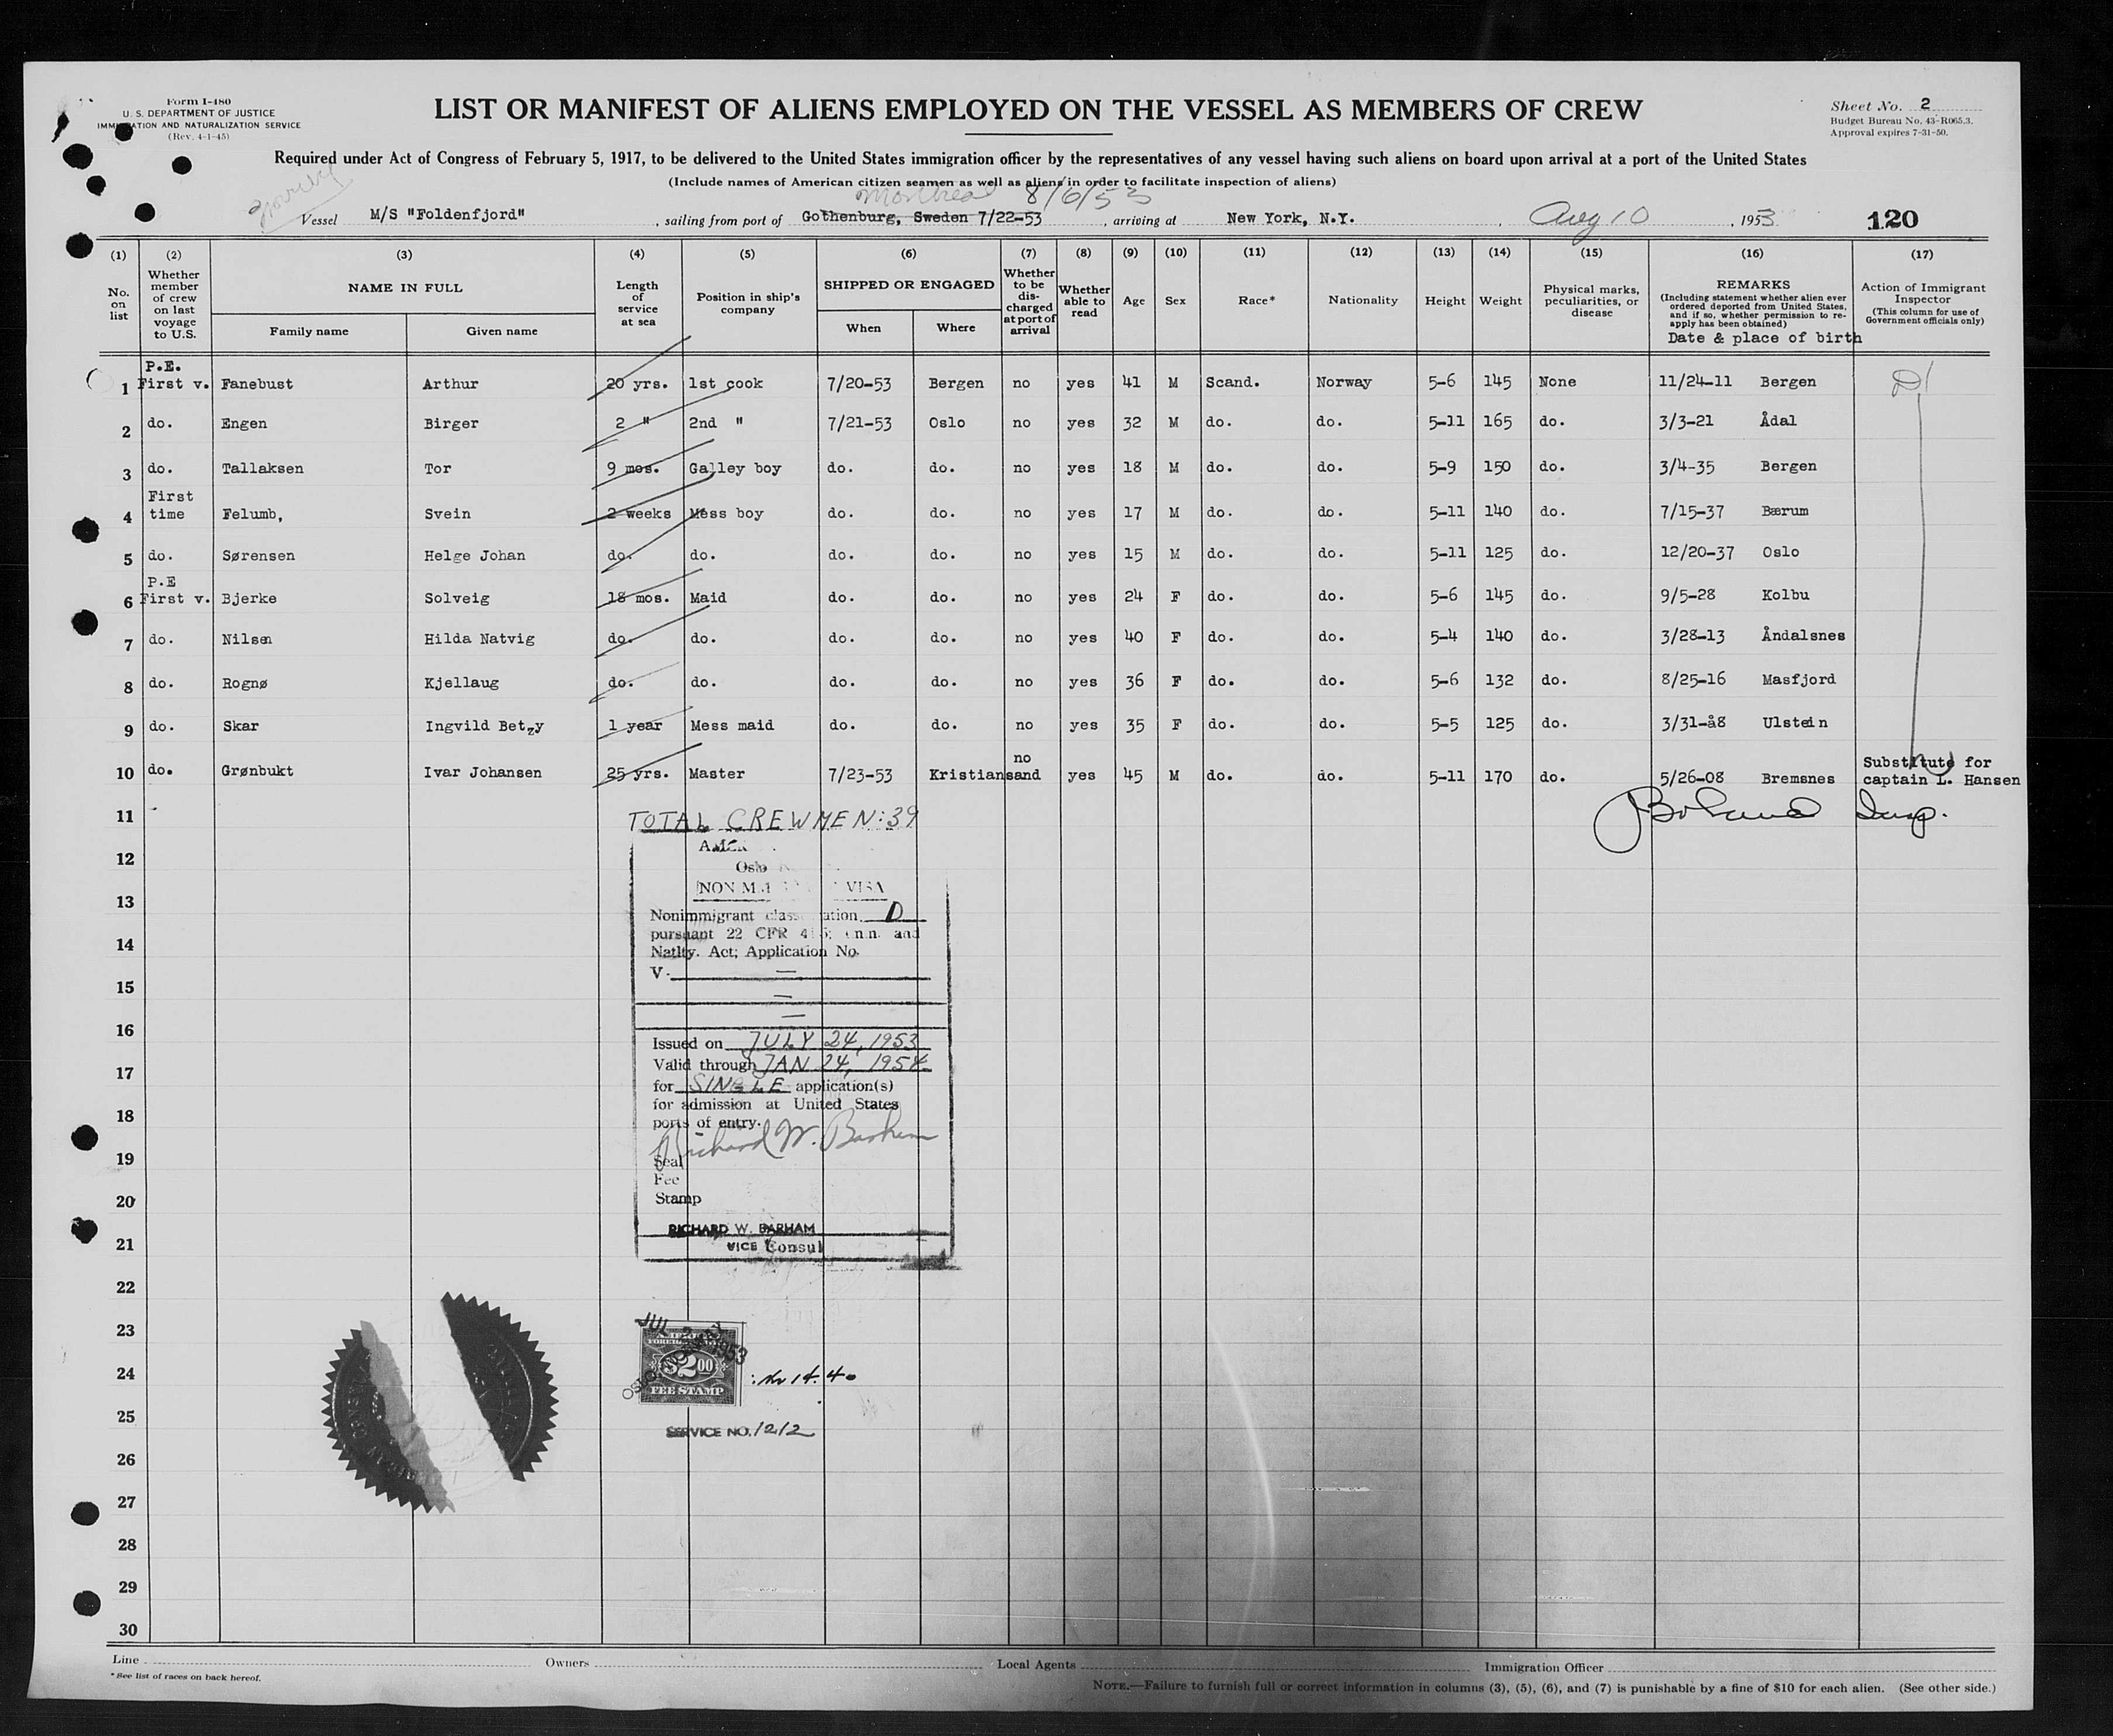 Form I-480
U. S. DEPARTMENT OF JUSTICE
IMMIGRATION AND NATURALIZATION SERVICE
(Rev. 4-1-45)
LIST OR MANIFEST OF ALIENS EMPLOYED ON THE VESSEL AS MEMBERS OF CREW
Sheet No. 2
Budget Bureau No. 43-R065.3.
Approval expires 7-31-50.
Required under Act of Congress of February 5, 1917, to be delivered to the United States immigration officer by the representatives of any vessel having such aliens on board upon arrival at a port of the United States
(Include names of American citizen seamen as well as aliens in order to facilitate inspection of aliens)
Montreal 8/6/53
Vessel M/S "Foldenfjord" , sailing from port of Gothenburg, Sweden 7/22-53 , arriving at New York, N.Y. , Aug 10 , 1953
120
(1) (2) (3) (4) (5) (6) (7) (8) (9) (10) (11) (12) (13) (14) (15) (16) (17)
No. on list
Whether member of crew on last voyage to U.S.
NAME IN FULL
Family name
Given name
Length of service at sea
Position in ship's company
SHIPPED OR ENGAGED
When
Where
Whether to be discharged at port of arrival
Whether able to read
Age
Sex
Race*
Nationality
Height
Weight
Physical marks, peculiarities, or disease
REMARKS
(Including statement whether alien ever ordered deported from United States, and if so, whether permission to reapply has been obtained)
Date & place of birth
Action of Immigrant Inspector
(This column for use of Government officials only)
P.E.
1 First v. Fanebust Arthur 20 yrs. 1st cook 7/20-53 Bergen no yes 41 M Scand. Norway 5-6 145 None 11/24-11 Bergen
2 do. Engen Birger 2 " 2nd " 7/21-53 Oslo no yes 32 M do. do. 5-11 165 do. 3/3-21 Ådal
3 do. Tallaksen Tor 9 mos. Galley boy do. do. no yes 18 M do. do. 5-9 150 do. 3/4-35 Bergen
First
4 time Felumb, Svein 2 weeks Mess boy do. do. no yes 17 M do. do. 5-11 140 do. 7/15-37 Bærum
5 do. Sørensen Helge Johan do. do. do. do. no yes 15 M do. do. 5-11 125 do. 12/20-37 Oslo
P.E
6 First v. Bjerke Solveig 18 mos. Maid do. do. no yes 24 F do. do. 5-6 145 do. 9/5-28 Kolbu
7 do. Nilsen Hilda Natvig do. do. do. do. no yes 40 F do. do. 5-4 140 do. 3/28-13 Åndalsnes
8 do. Rognø Kjellaug do. do. do. do. no yes 36 F do. do. 5-6 132 do. 8/25-16 Masfjord
9 do. Skar Ingvild Betzy 1 year Mess maid do. do. no yes 35 F do. do. 5-5 125 do. 3/31-å8 Ulstein
10 do. Grønbukt Ivar Johansen 25 yrs. Master 7/23-53 Kristiansand no yes 45 M do. do. 5-11 170 do. 5/26-08 Bremsnes Substitute for
captain L. Hansen
11
TOTAL CREWMEN: 39
Boland Insp.
12
Oslo
13
VISA
Nonimmigrant D
14
pursuant 22 CFR and
Natlty. Act; Application No.
V-
15
16
Issued on JULY 24, 1953
17
Valid through JAN 24, 1954
for SINGLE application(s)
18
for admission at United States
ports of entry.
Richard W. Barham
19
Seal
Fee
20
Stamp
RICHARD W. BARHAM
21
VICE Consul
22
23
JUL 1953
OSLO, NORWAY
AMERICAN
FOREIGN
$2.00
24
FEE STAMP
14.40
25
SERVICE NO. 1212
26
27
28
29
30
Line Owners Local Agents Immigration Officer
* See list of races on back hereof.
NOTE.—Failure to furnish full or correct information in columns (3), (5), (6), and (7) is punishable by a fine of $10 for each alien. (See other side.)